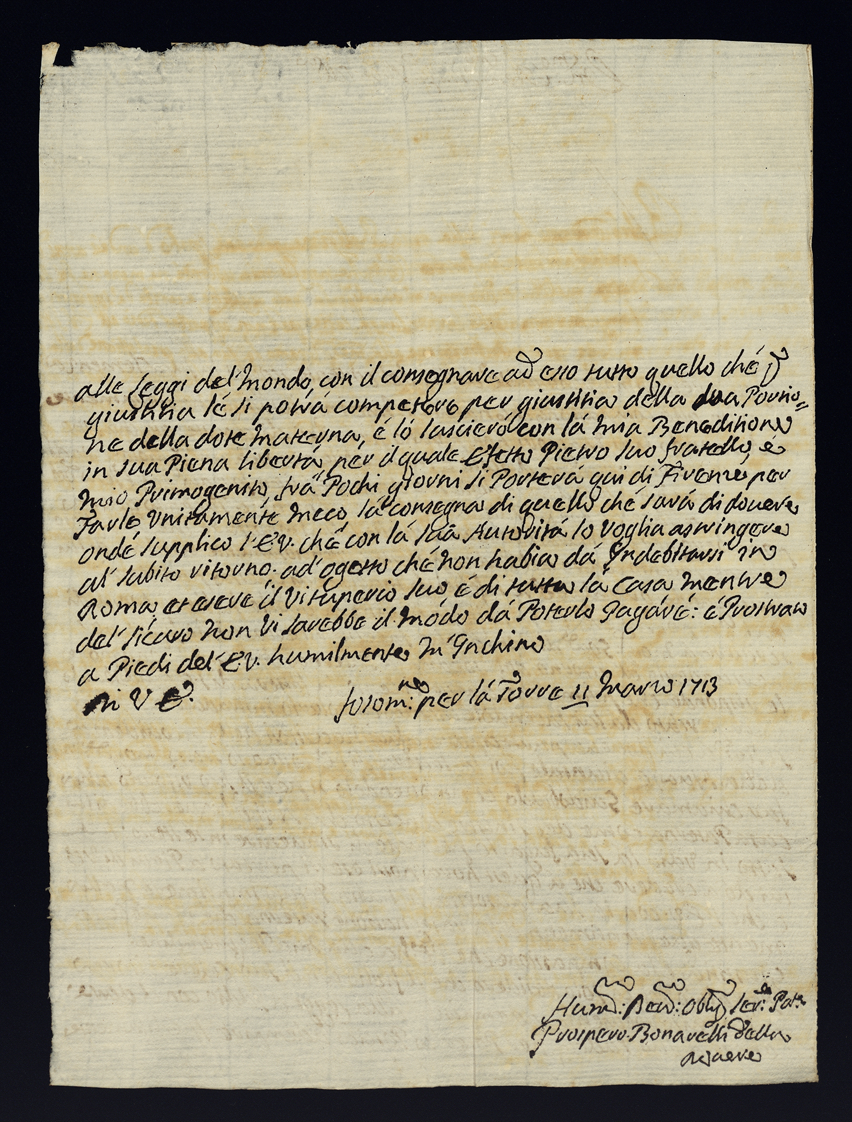 alle Leggi del' Mondo, con il consegnare ad' esso tutto quello ché p
giustitia lé si potrá competere per giustitia della sua Portio=
ne della dote materna, é ló lascieró con lá mia Beneditione
in sua Piena libertá, per il quale Efetto Pietro suo fratello, é
mio Primogenito, frá Pochi giorni si Porterá qui di Firenze per
Farle Unitaménte meco lá consegna di quello ché sará di dovere
ondé supplico l'E.V. ché con lá suá Autoritá lo voglia astringere
al' subito ritorno. ad' ogetto ché non habia dá Indebitarsi in
Roma, et esere il Vituperio suo é di tutta la Casa mentre
del' sicuro non vi sarebbe il módo dá Poterlo Pagaré: é Prostrato
a Piedi del' E.V. humilmente M' Inchino
Di V. E.
per lá Torre 11 Marzo 1713
Hum: Dev: Obl: Ser:
Prospero Bonarelli della
Rovere